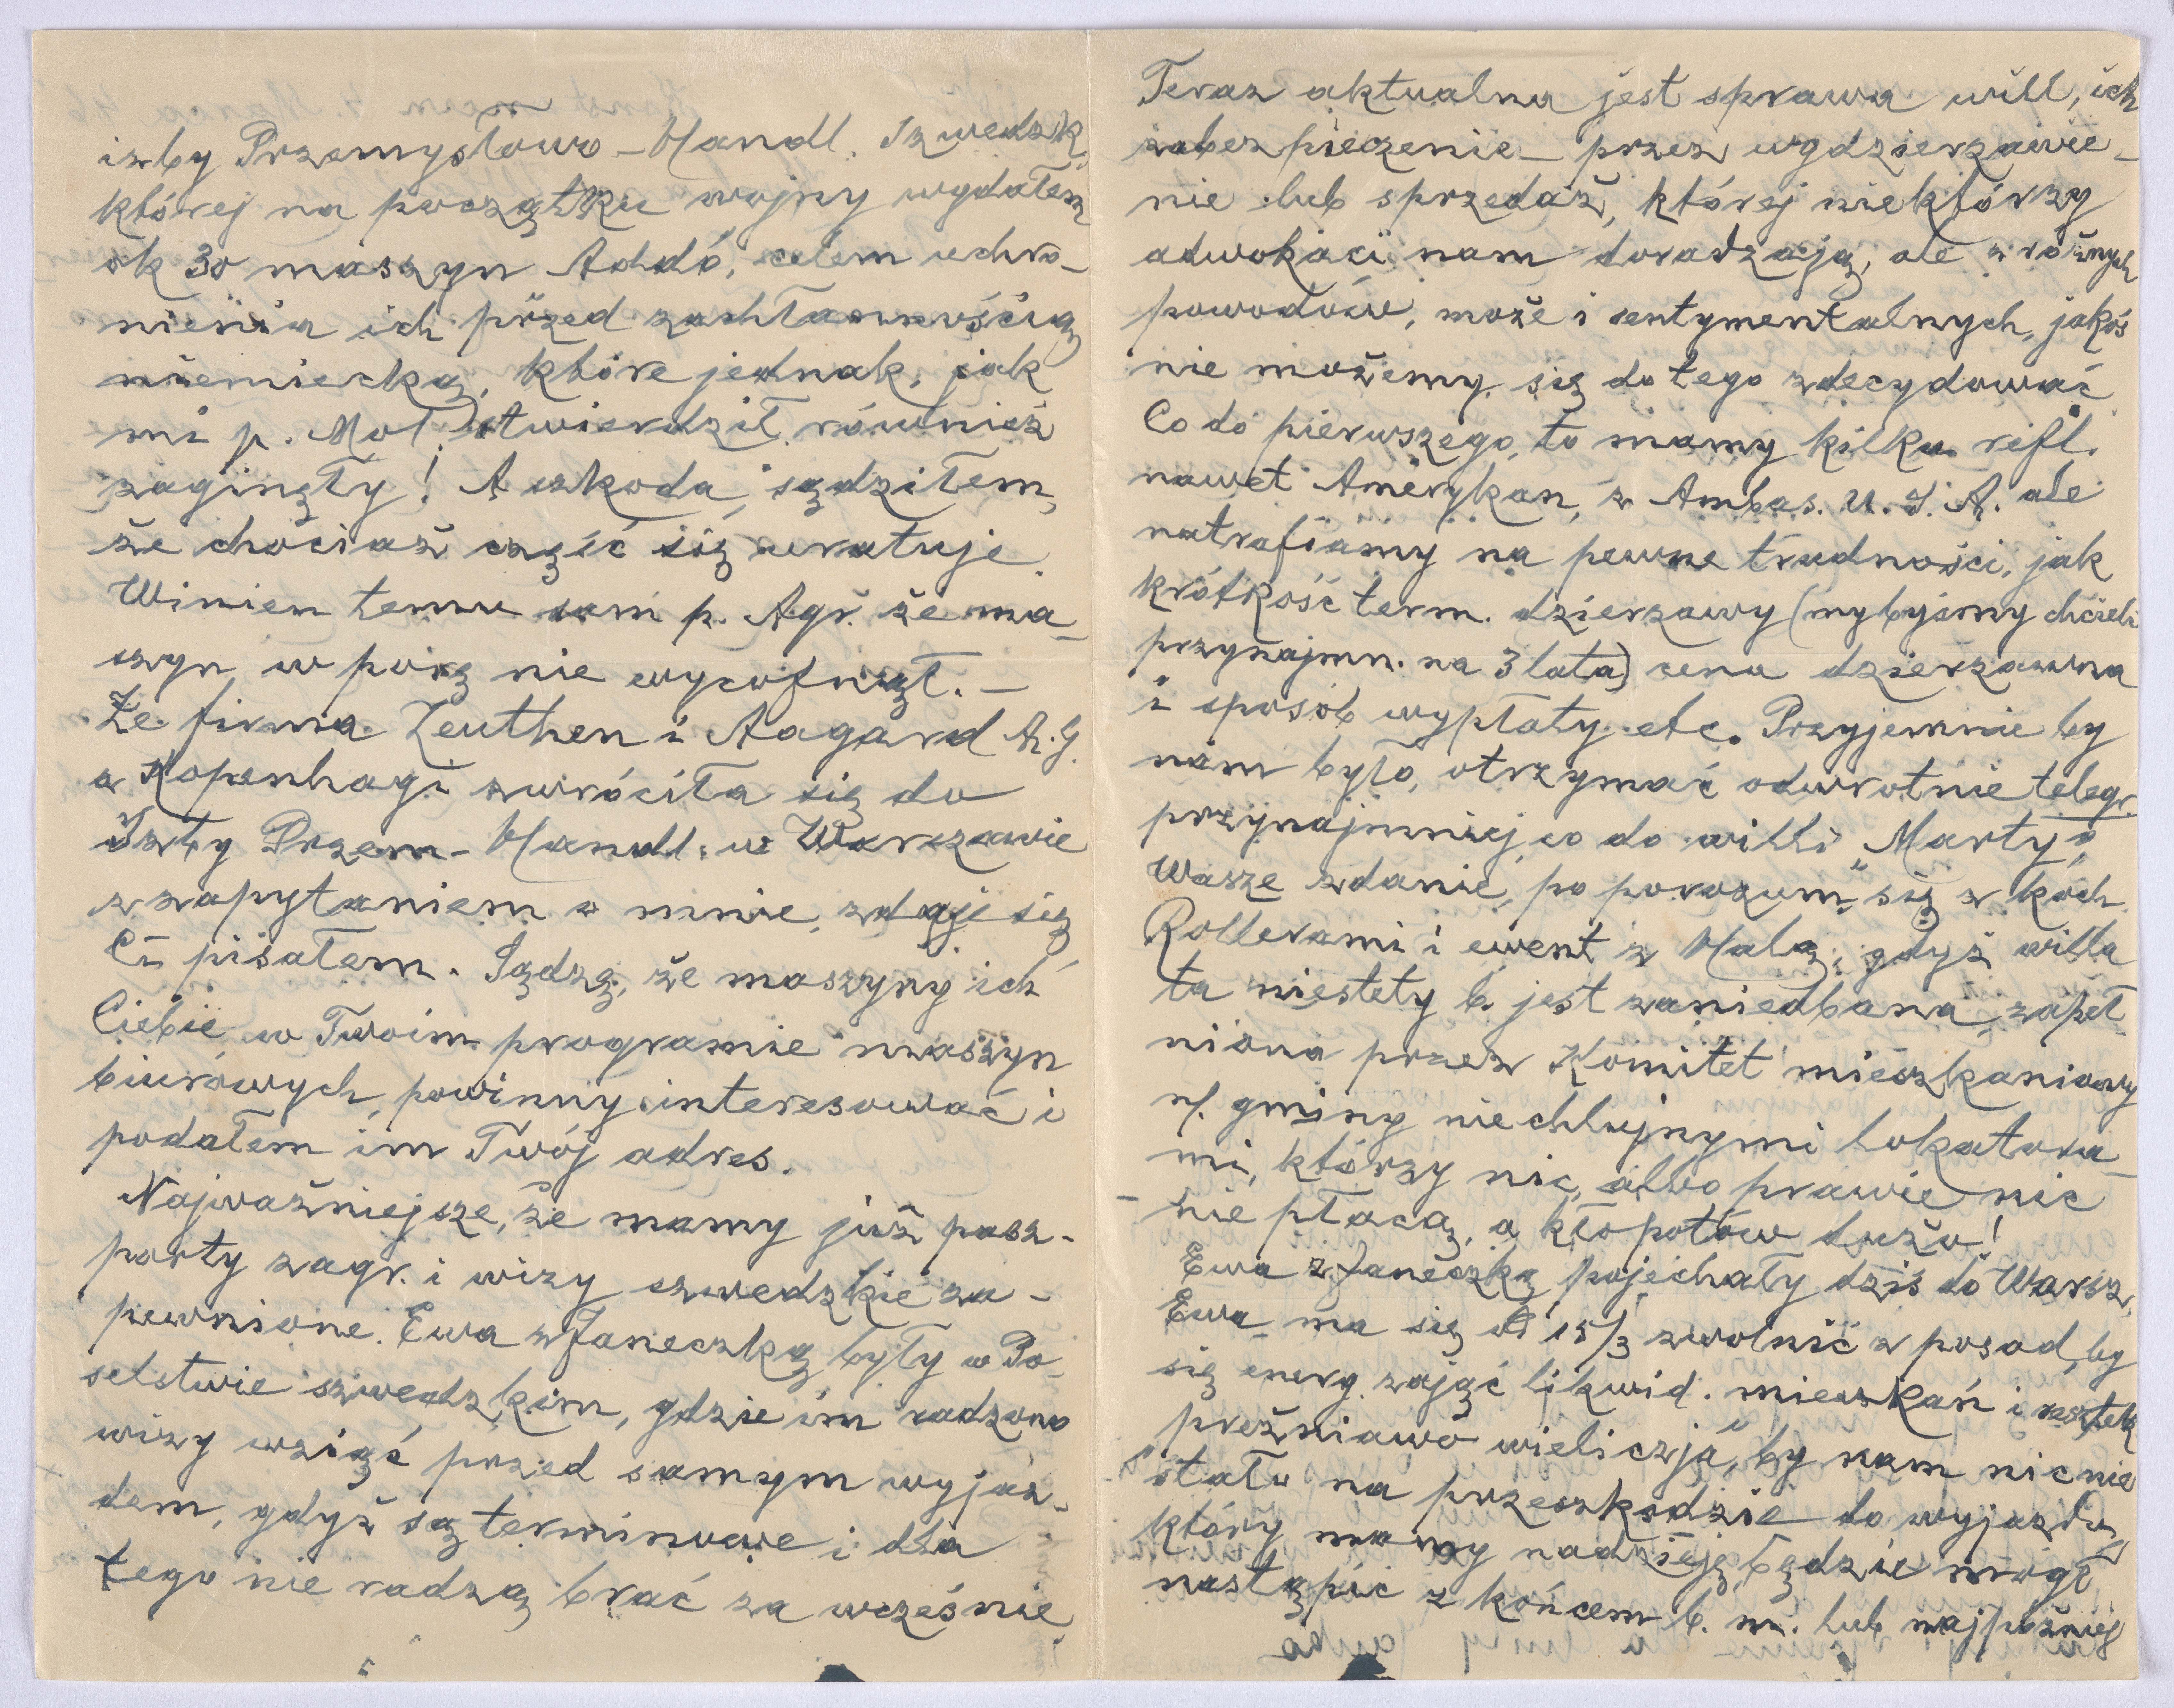 izby Przemysłowo-Handl. Szwedzk.
której na początku wojny wydałem
ok 30 maszyn Addó, celem uchro-
nienia ich przed zachłannością
niemiecką, które jednak, jak
mi p. Mol. stwierdził również
zaginęły! A szkoda, sądziłem,
że chociaż część się uratuje.
Winien temu sam p. Agr. że ma-
szyn w porę nie wycofnął. –
Że firma Zeuthen i Aagard A.G.
z Kopenhagi zwróciła się do
Izby Przem-Handl. w Warszawie
z zapytaniem o mnie, zdaje się
Ci pisałem. Sądzę, że maszyny ich
Ciebie w Twoim programie maszyn
biurowych, powinny interesować i
podałem im Twój adres.
Najważniejsze, że mamy już pasz-
porty zagr. i wizy szwedzkie za-
pewnione. Ewa z Janeczką były w Po-
selstwie szwedzkim, gdzie im radzono
wizy wziąć przed samym wyjaz-
dem, gdyż są terminowe i dla
tego nie radzą brać za wcześnie.
Teraz aktualna jest sprawa will, ich
zabezpieczenie – przez wydzierzawie-
nie lub sprzedaż, której niektórzy
adwokaci nam doradzają, ale z różnych
powodów, może i sentymentalnych, jakoś
nie możemy się do tego zdecydować.
Co do pierwszego, to mamy kilku refl.
nawet Amerykan, z Ambas. U.S.A. ale
natrafiamy na pewne trudności, jak
krótkość term. dzierzawy (my byśmy chcieli
przynajmn. na 3 lata) cena dzierzawna
i sposób wypłaty etc. Przyjemnie by
nam było, otrzymać odwrotnie telegr.
przynajmniej co do willi „Marty”
Wasze zdanie, po porozum. się z koch.
Rollerami i ewent z Halą, gdyż willa
ta niestety b. jest zaniedbana, zapeł-
niona przez Komitet mieszkaniowy
n/. gminy niechlujnymi lokatora-
mi, którzy nic, albo prawie nic
nie płacą, a kłopotów dużo!
Ewa z Janeczką pojechały dziś do Warsz.
Ewa ma się od 15/3 zwolnić z posad, by
się energ. zająć likwid. mieszkań i resztek
by nam nic nie
stało na przeszkodzie do wyjazdu,
który mamy nadzieję, będzie mógł
nastąpić z końcem b. m. lub najpóźniej